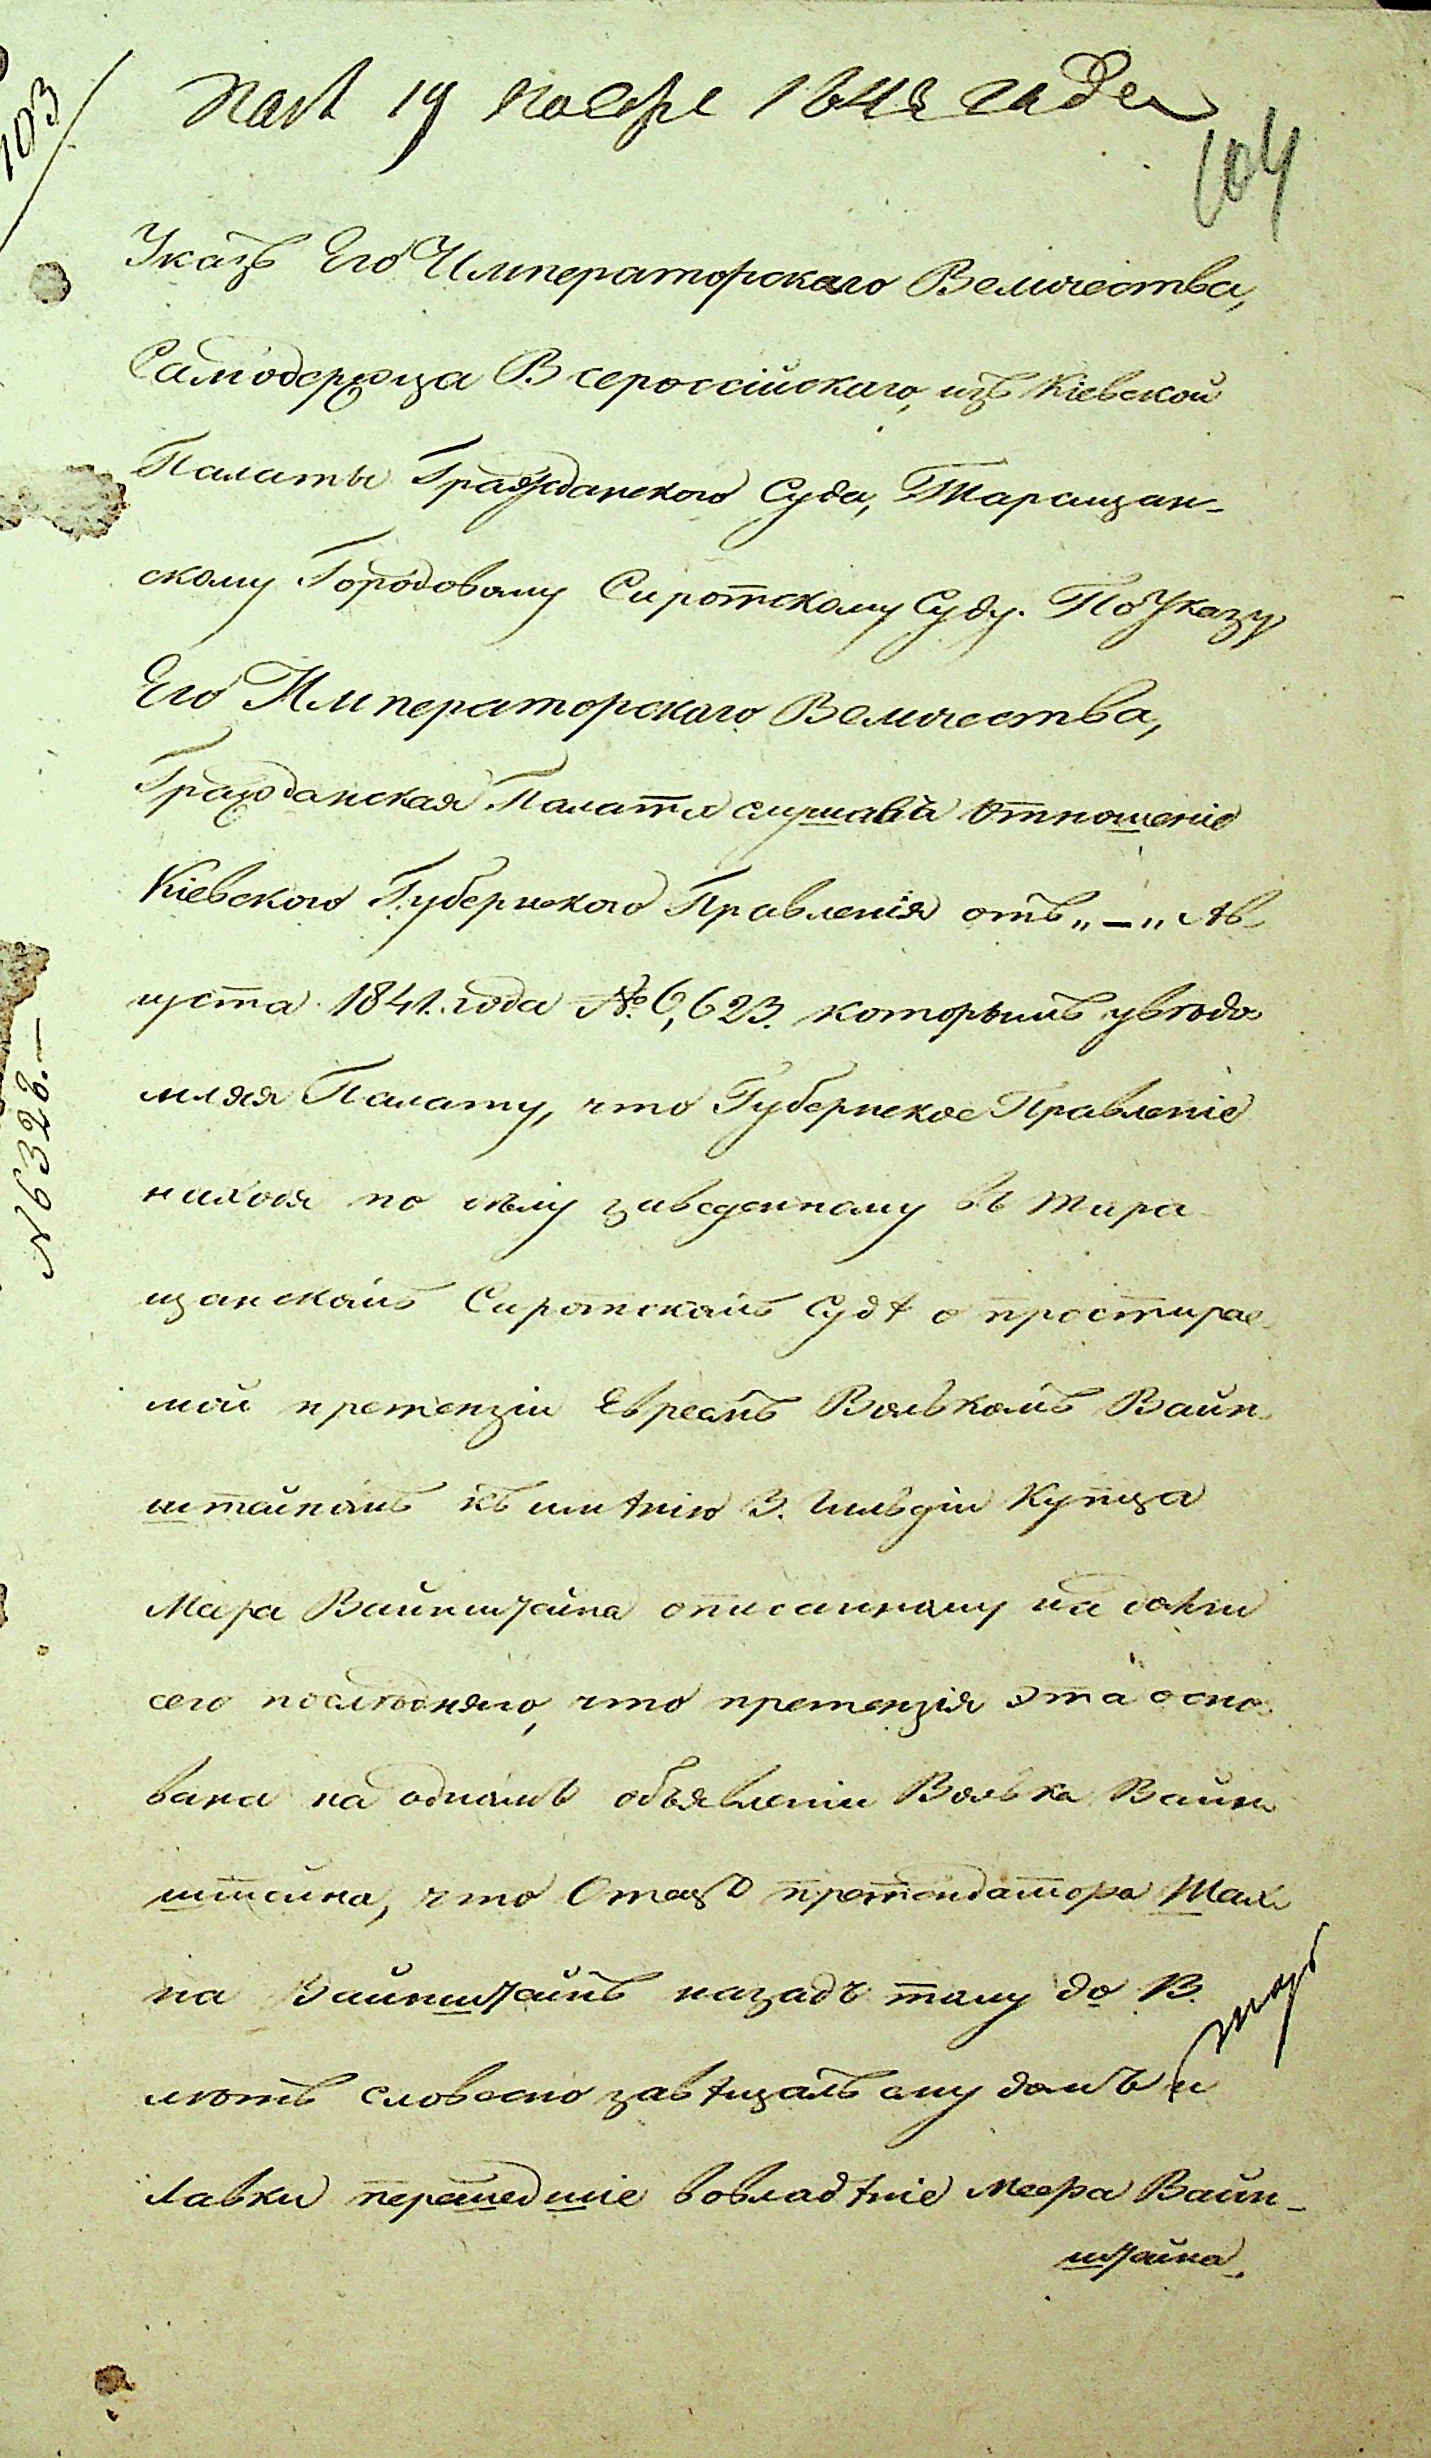 103
19 ноября 184 года
104
Указъ Его Императорскаго Величества,
Самодержца Всероссійскаго, изъ Кіевской
Палаты Гражданского Суда, Таращан-
скому Городовому Сиротскому Суду. По Указу
Его Императорскаго Величества,
Гражданская Палата слушавъ отношеніе
Кіевского Губернского Правленія отъ „—„ Ав-
густа 1841. года №. 6,623. которымъ увѣдо-
мляя Палату, что Губернское Правленіе
находя по дѣлу заведенному въ Тара-
щанскомъ Сиротскомъ Судѣ о простирае-
мой претензіи Евреемъ Волькомъ Вайн-
штейномъ къ имѣнію 3. Гильдіи Купца
Меера Вайнштейна описанному на долги
сего послѣдняго, что претензія эта осно-
вана на одномъ объявленіи Волька Вайн-
штейна, что Отецъ претендатора Шах-
на Вайнштейнъ назадъ тому до В.
лѣтъ словесно завѣщалъ ему домъ и
Лавки перешедшіе вовладѣніе Меера Вайн-
штейна,
№ 6328.—